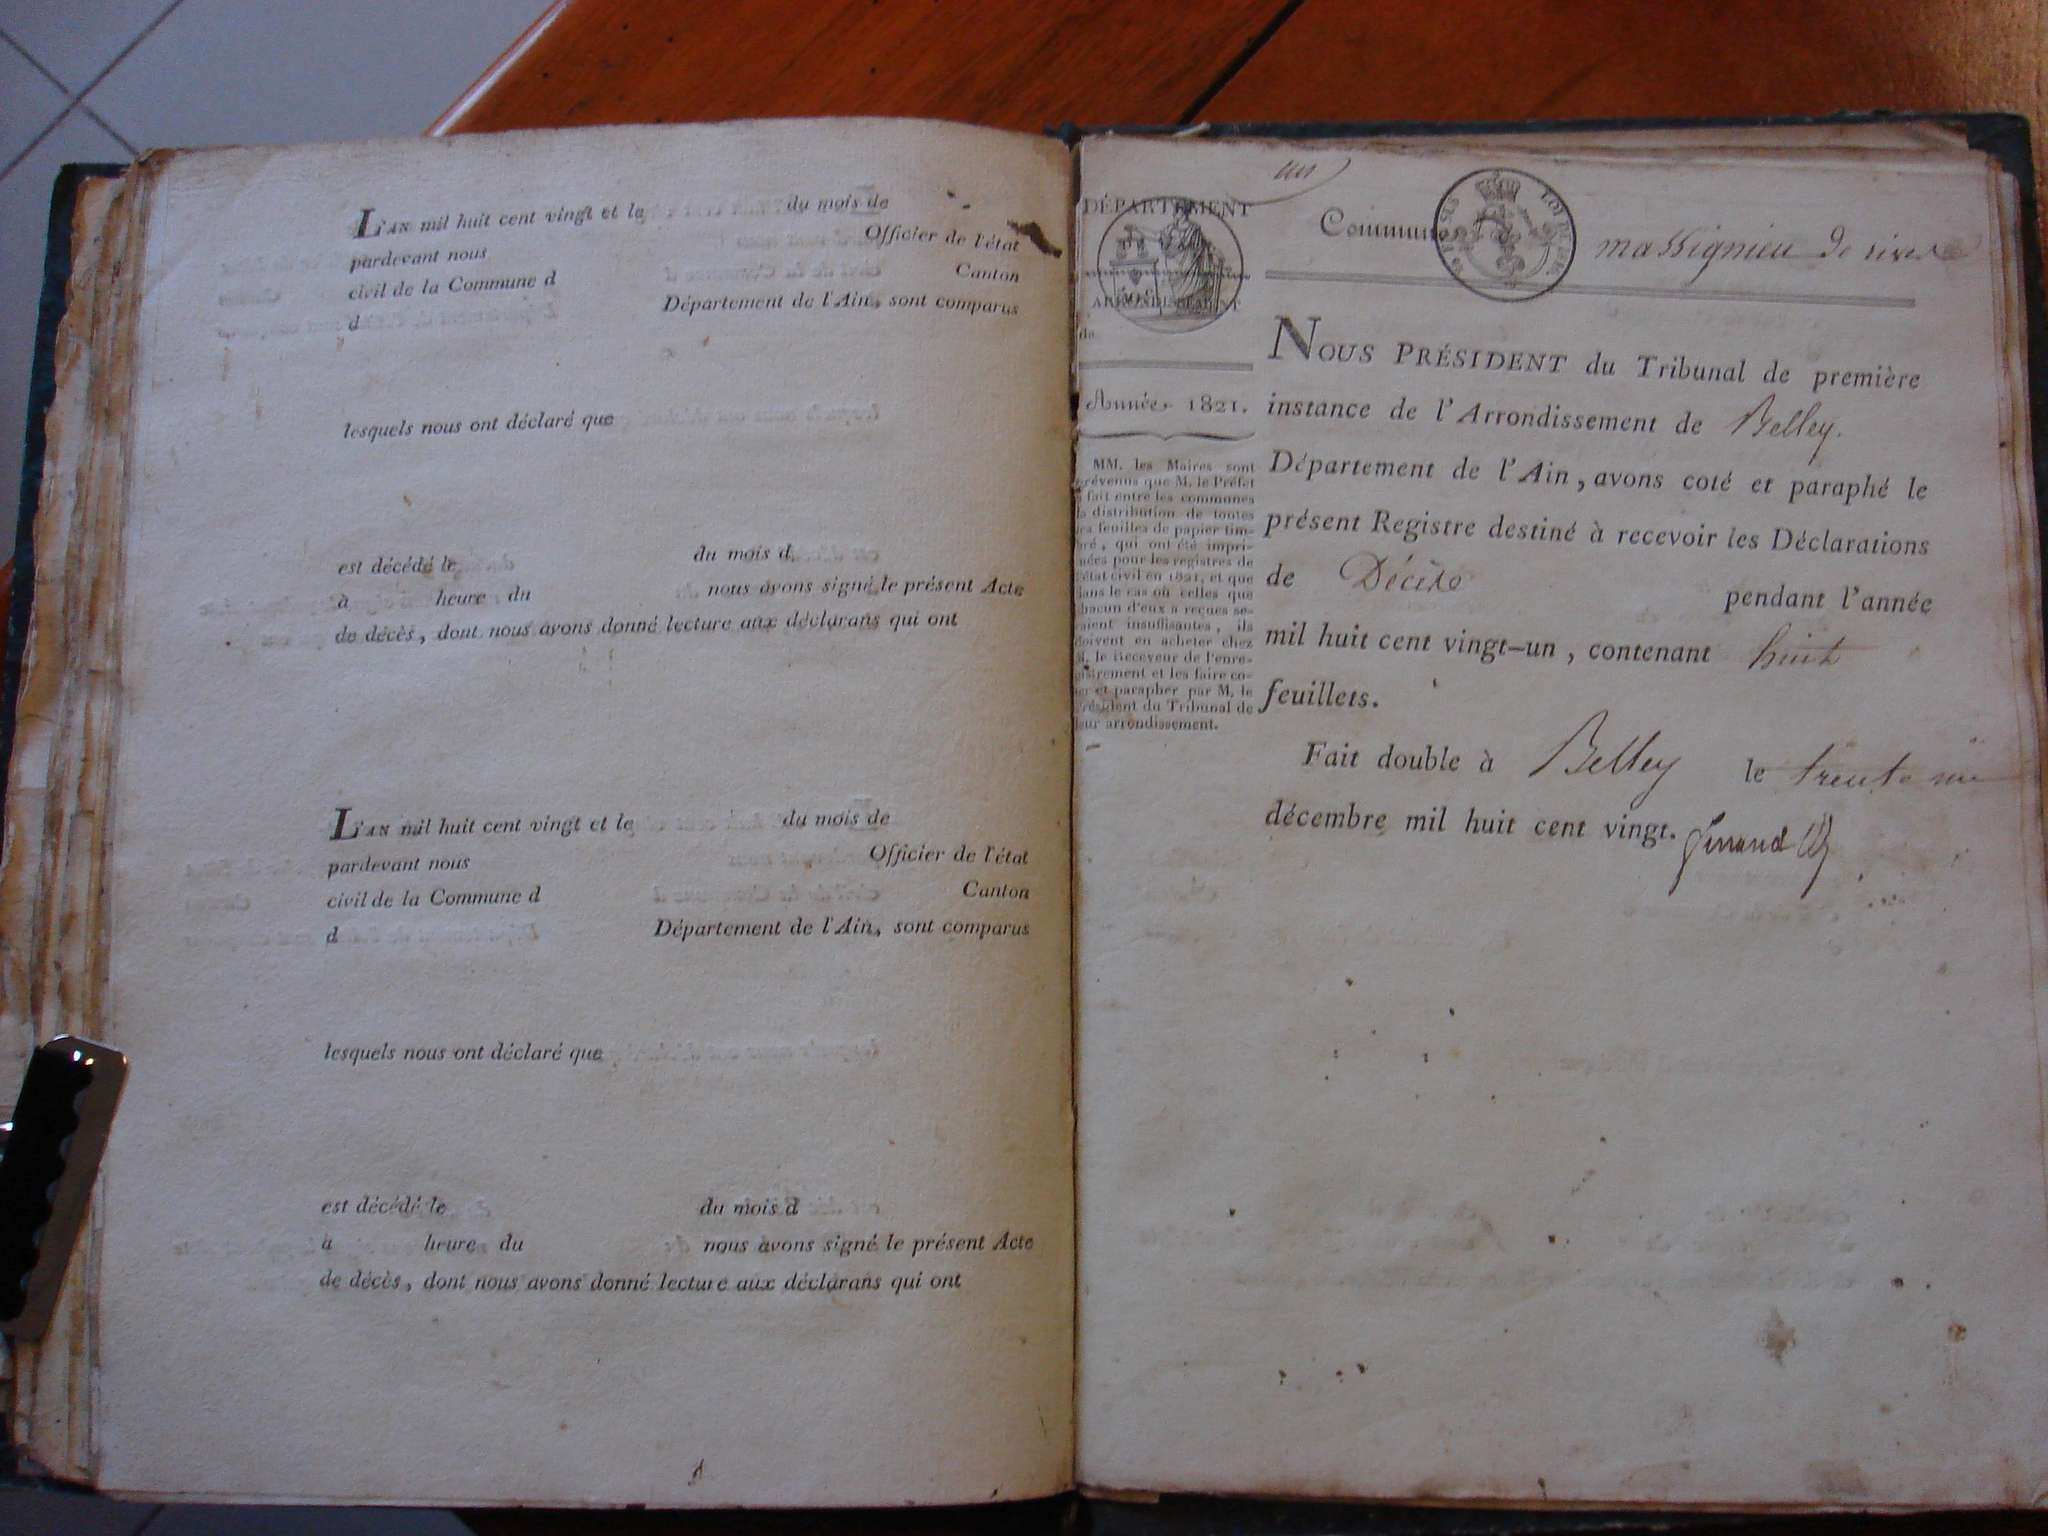 L'AN mil huit cent vingt et le du mois de
pardevant nous Officier de l'état
civil de la Commune d Canton
d Département de l'Ain, sont comparus
lesquels nous ont déclaré que
est décédé le du mois d
à heure du nous avons signé le présent Acte
de décès, dont nous avons donné lecture aux déclarans qui ont
L'AN mil huit cent vingt et le du mois de
pardevant nous Officier de l'état
civil de la Commune d Canton
d Département de l'Ain, sont comparus
lesquels nous ont déclaré que
est décédé le du mois d
à heure du nous avons signé le présent Acte
de décès, dont nous avons donné lecture aux déclarans qui ont
un
DÉPARTEMENT
ARRONDISSEMENT
de
Année 1821.
MM. les Maires sont
prévenus que M. le Préfet
a fait entre les communes
la distribution de toutes
les feuilles de papier tim-
bré, qui ont été impri-
mées pour les registres de
l'état civil en 1821, et que
dans le cas où celles que
chacun d'eux a reçues se-
raient insuffisantes, ils
doivent en acheter chez
M. le Receveur de l'enre-
gistrement et les faire co-
ter et parapher par M. le
Président du Tribunal de
leur arrondissement.
Commune massignieu de rives
NOUS PRÉSIDENT du Tribunal de première
instance de l'Arrondissement de Belley.
Département de l'Ain, avons coté et paraphé le
présent Registre destiné à recevoir les Déclarations
de Décès pendant l'année
mil huit cent vingt-un, contenant huit
feuillets.
Fait double à Belley le trente un
décembre mil huit cent vingt.